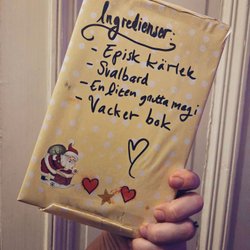 Ingredienser:
- Episk kärlek
- Svalbard
- En liten gnutta magi
- Vacker bok